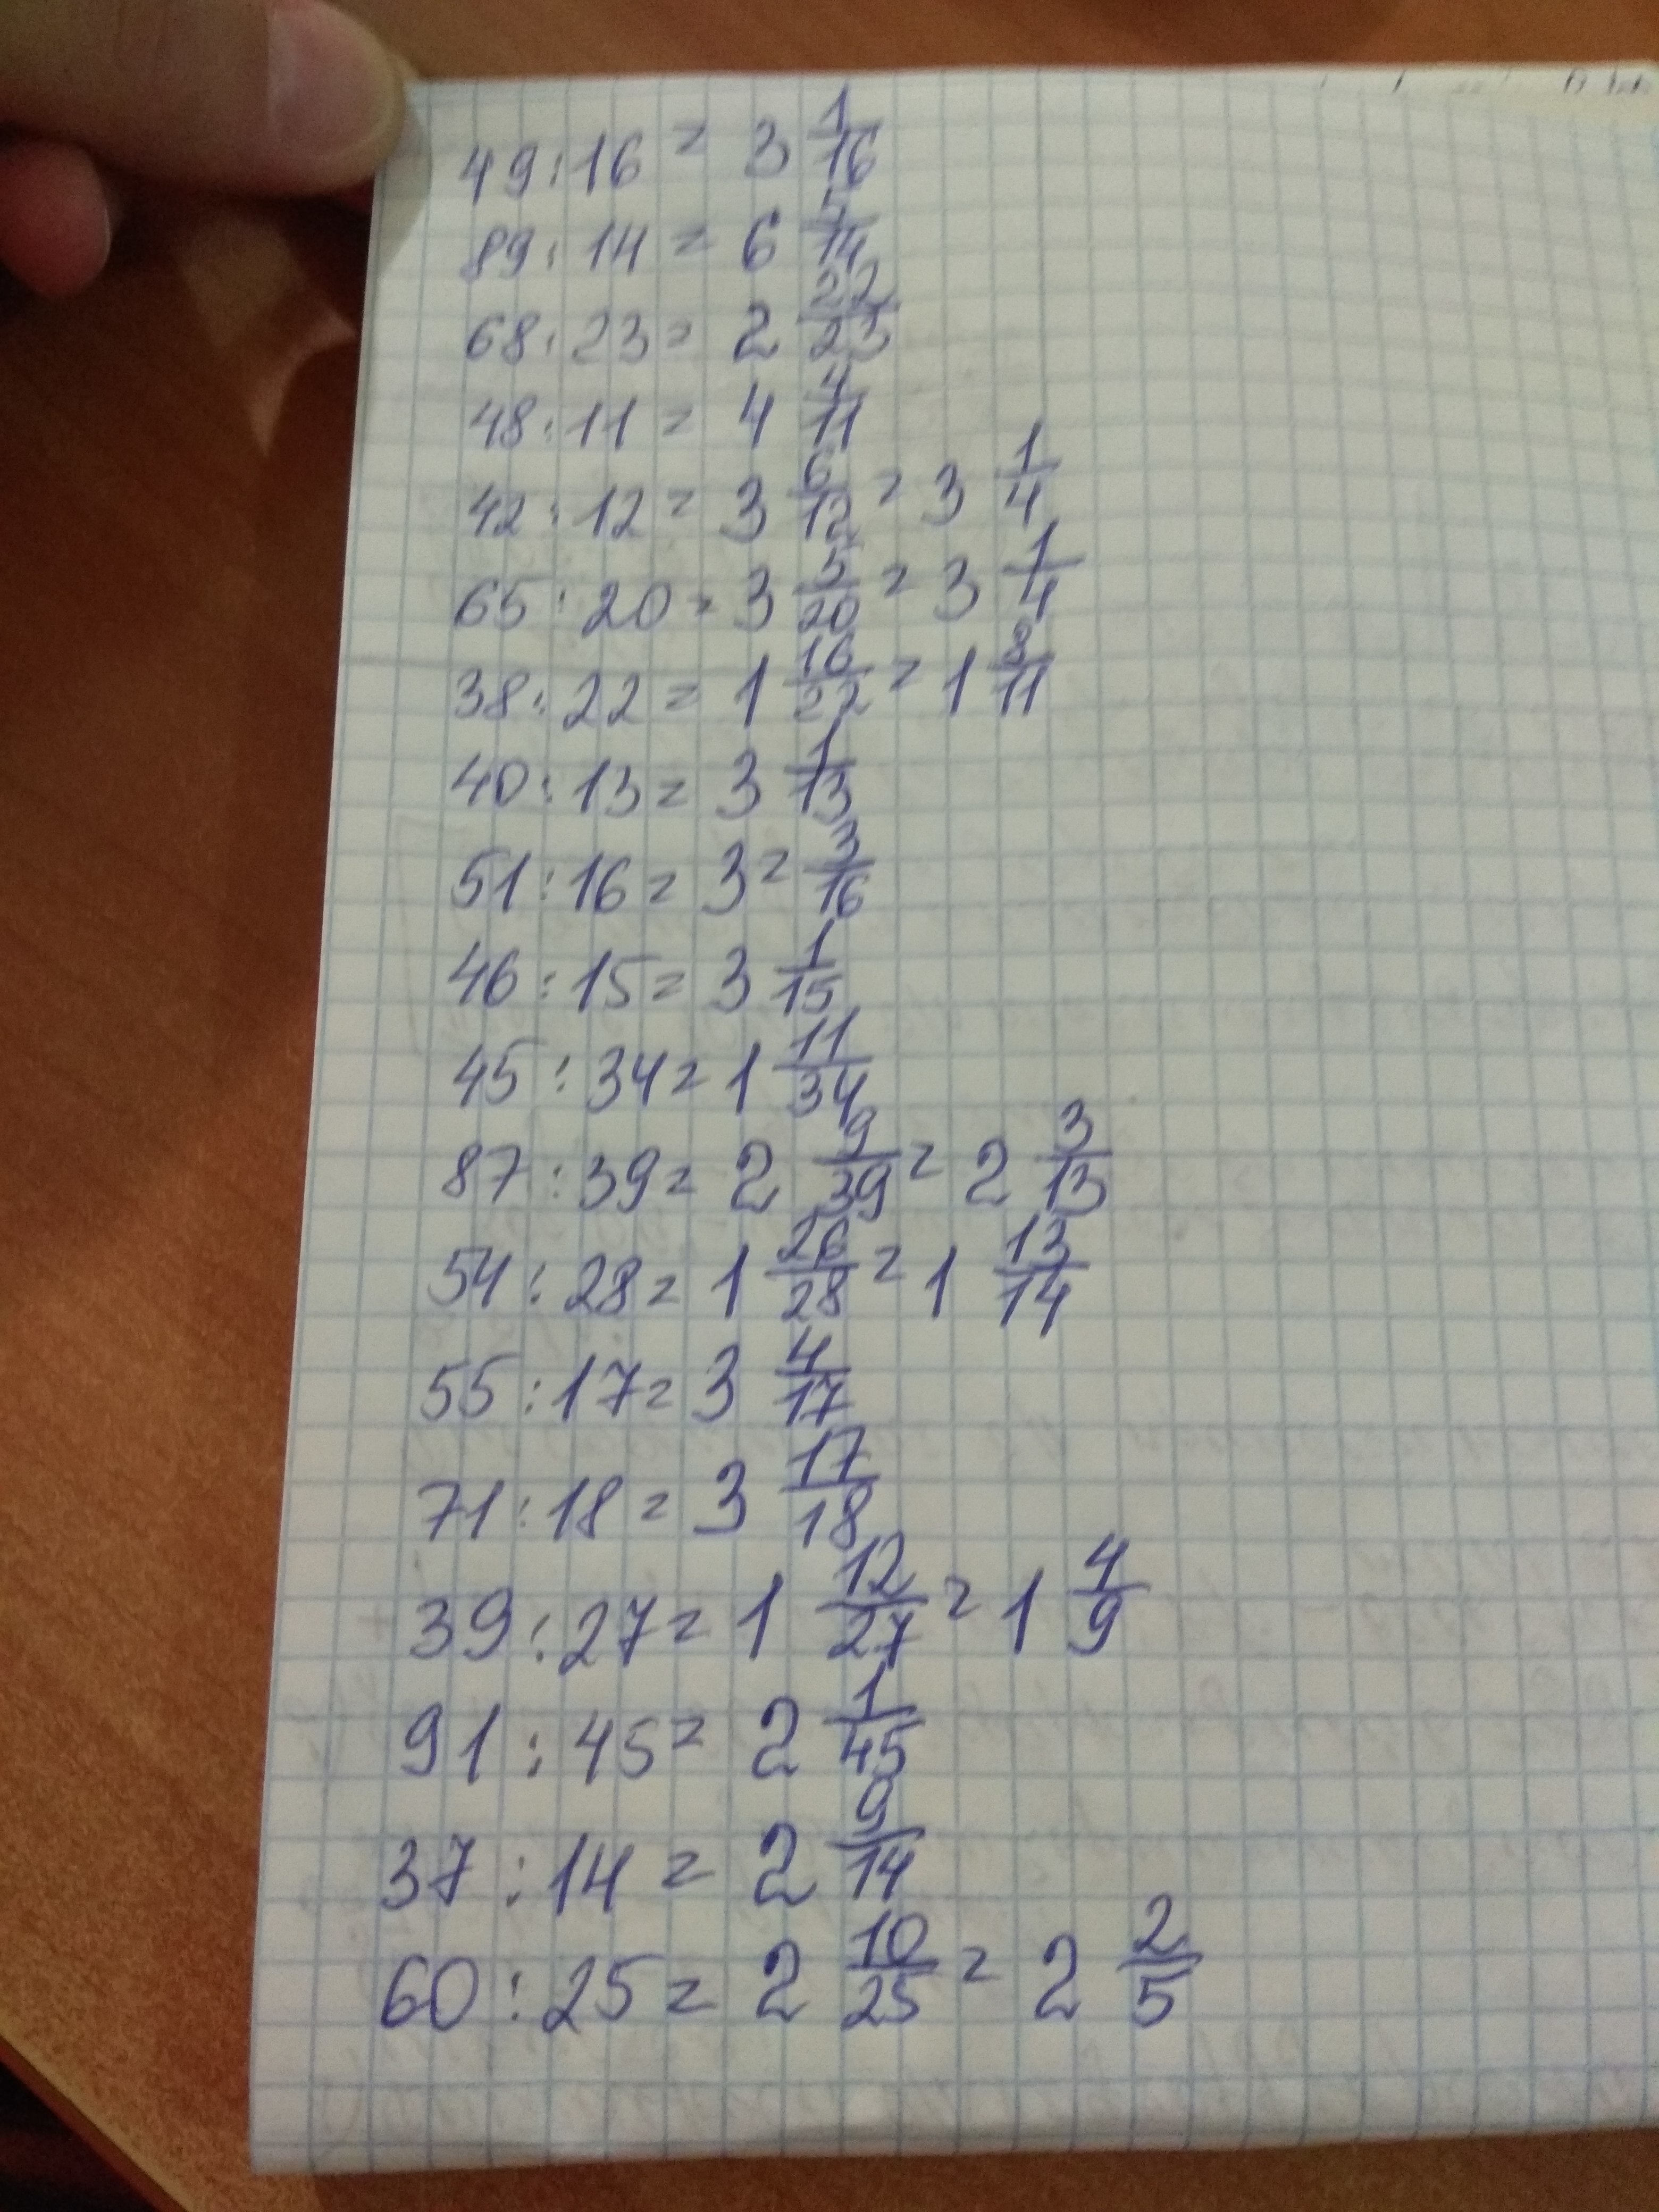 49:16 = 3 1/16
89:14 = 6 5/14
68:23 = 2 22/23
48:11 = 4 4/11
42:12 = 3 6/12 = 3 1/4
65:20 = 3 5/20 = 3 1/4
38:22 = 1 16/22 = 1 8/11
40:13 = 3 1/13
51:16 = 3 = 3/16
46:15 = 3 1/15
45:34 = 1 11/34
87:39 = 2 9/39 = 2 3/13
54:28 = 1 26/28 = 1 13/14
55:17 = 3 4/17
71:18 = 3 17/18
39:27 = 1 12/27 = 1 4/9
91:45 = 2 1/45
37:14 = 2 9/14
60:25 = 2 10/25 = 2 2/5